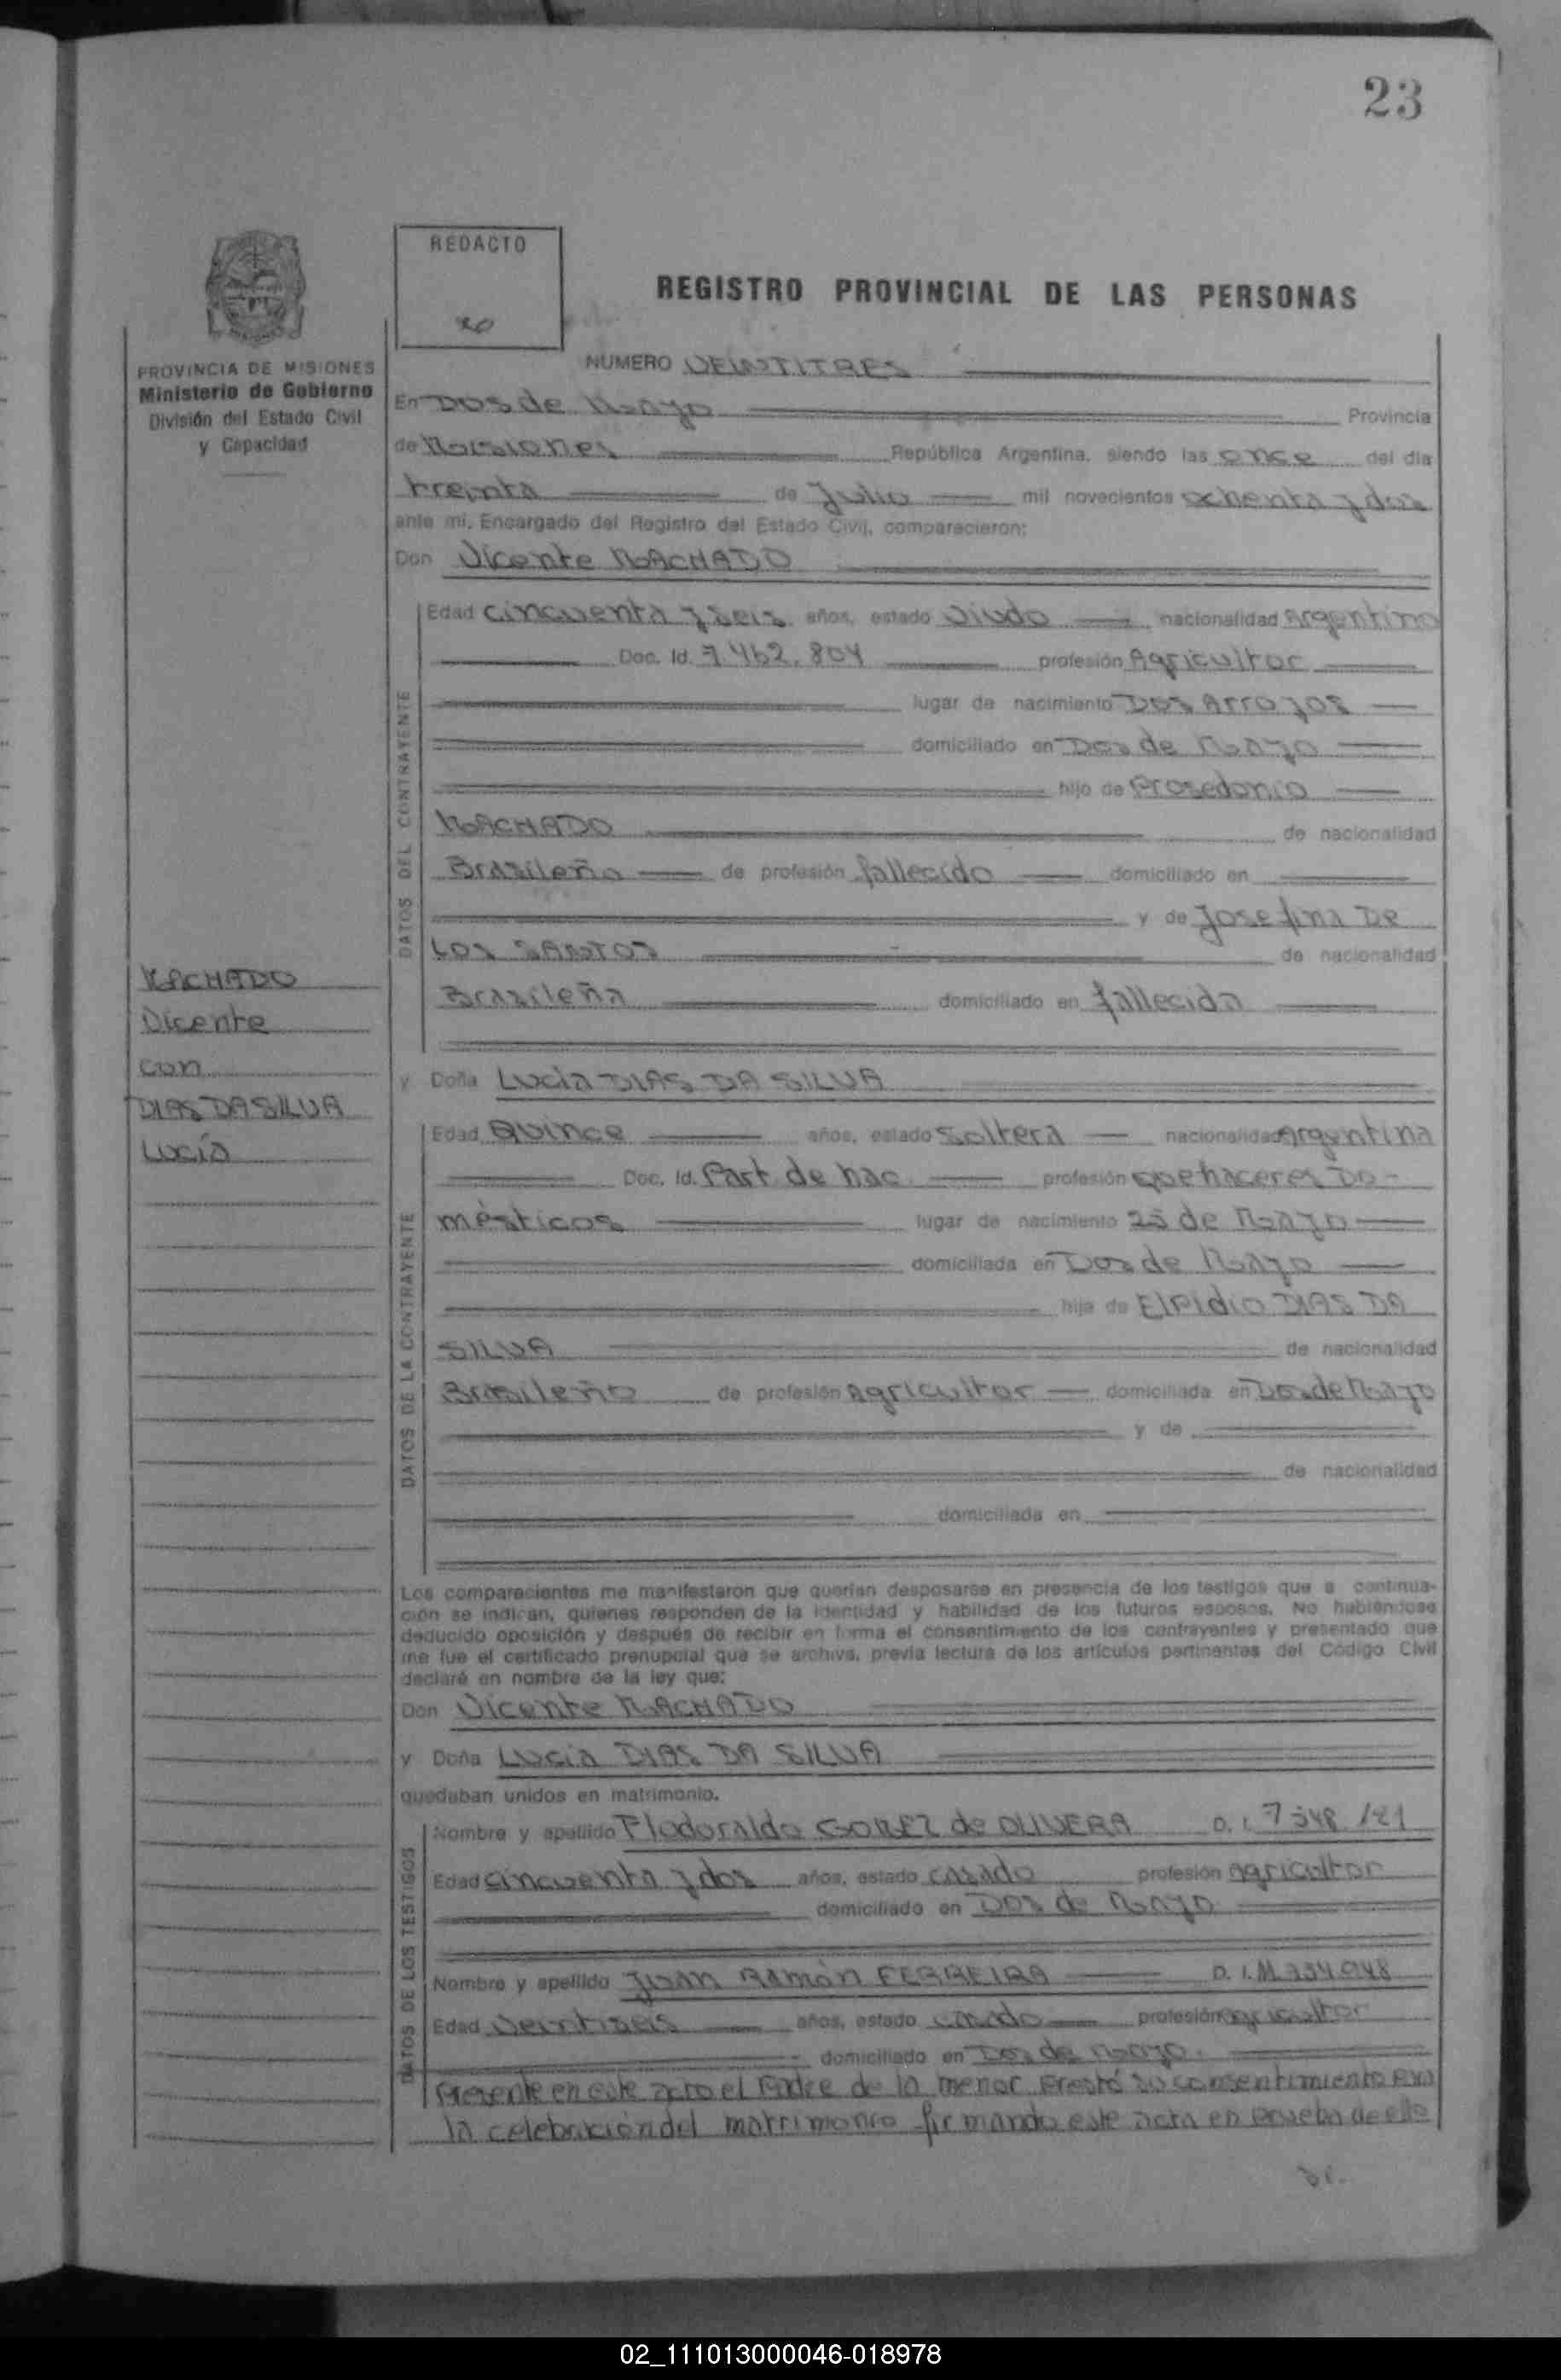 23
REDACTO
REGISTRO PROVINCIAL DE LAS PERSONAS
PROVINCIA DE MISIONES
Ministerio de Gobierno
División del Estado Civil
y Capacidad
MACHADO
Vicente
con
DIAS DA SILVA
Lucía
NUMERO VEINTITRES
En Dos de Mayo Provincia
de Misiones República Argentina, siendo las once del día
treinta de Julio mil novecientos ochenta y dos
ante mi, Encargado del Registro del Estado Civil, comparecieron:
Don Vicente MACHADO
DATOS DEL CONTRAYENTE
Edad cincuenta y seis años, estado Viudo nacionalidad Argentino
Doc. Id. 7.462.804 profesión Agricultor
lugar de nacimiento Dos Arroyos
domiciliado en Dos de Mayo
hijo de Prosedonio
MACHADO de nacionalidad
Brasileña de profesión fallecido domiciliado en
y de Josefina DE
LOS SANTOS de nacionalidad
Brasileña domiciliado en fallecida
y Doña Lucia DIAS DA SILVA
DATOS DE LA CONTRAYENTE
Edad Quince años, estado Soltera nacionalidad Argentina
Doc. Id. Part. de nac. profesión quehaceres Do-
mésticos lugar de nacimiento 25 de Mayo
domiciliada en Dos de Mayo
hija de Elpidio DIAS DA
SILVA de nacionalidad
Brasileño de profesión Agricultor domiciliada en Dos de Mayo
y de
de nacionalidad
domiciliada en
Los comparecientes me manifestaron que querían desposarse en presencia de los testigos que a continua-
ción se indican, quienes responden de la identidad y habilidad de los futuros esposos. No habiéndose
deducido oposición y después de recibir en forma el consentimiento de los contrayentes y presentado que
me fue el certificado prenupcial que se archiva, previa lectura de los artículos pertinentes del Código Civil
declaré en nombre de la ley que:
Don Vicente MACHADO
y Doña Lucia DIAS DA SILVA
quedaban unidos en matrimonio.
DATOS DE LOS TESTIGOS
Nombre y apellido Flodoraldo GOMEZ de OLIVERA D.I. 7 548
Edad cincuenta y dos años, estado casado profesión agricultor
domiciliado en Dos de Mayo
Nombre y apellido Juan Ramón FERREIRA D.I.
Edad veintiseis años, estado casado profesión agricultor
domiciliado en Dos de Mayo.
Presente en este acto el Padre de la menor prestó su consentimiento para
la celebración del matrimonio firmando este acta en prueba de ello
02_111013000046-018978